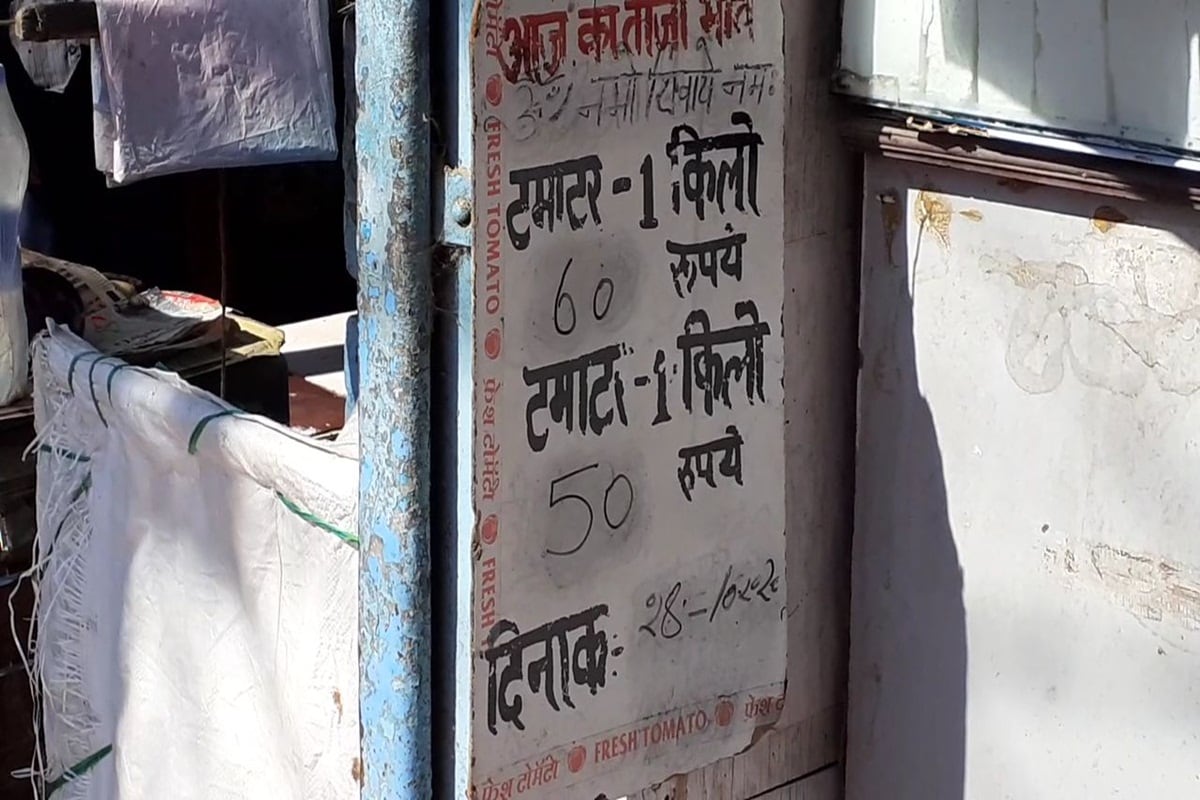 आज का ताजा भाव
ॐ नमो शिवाये नमः
टमाटर - 1 किलो
60 रूपये
टमाटर - 1 किलो
50 रुपये
दिनाक:
FRESH TOMATO
फ्रेश टोमॅटो
FRESH
फ्रेश टोमॅटो FRESH TOMATO